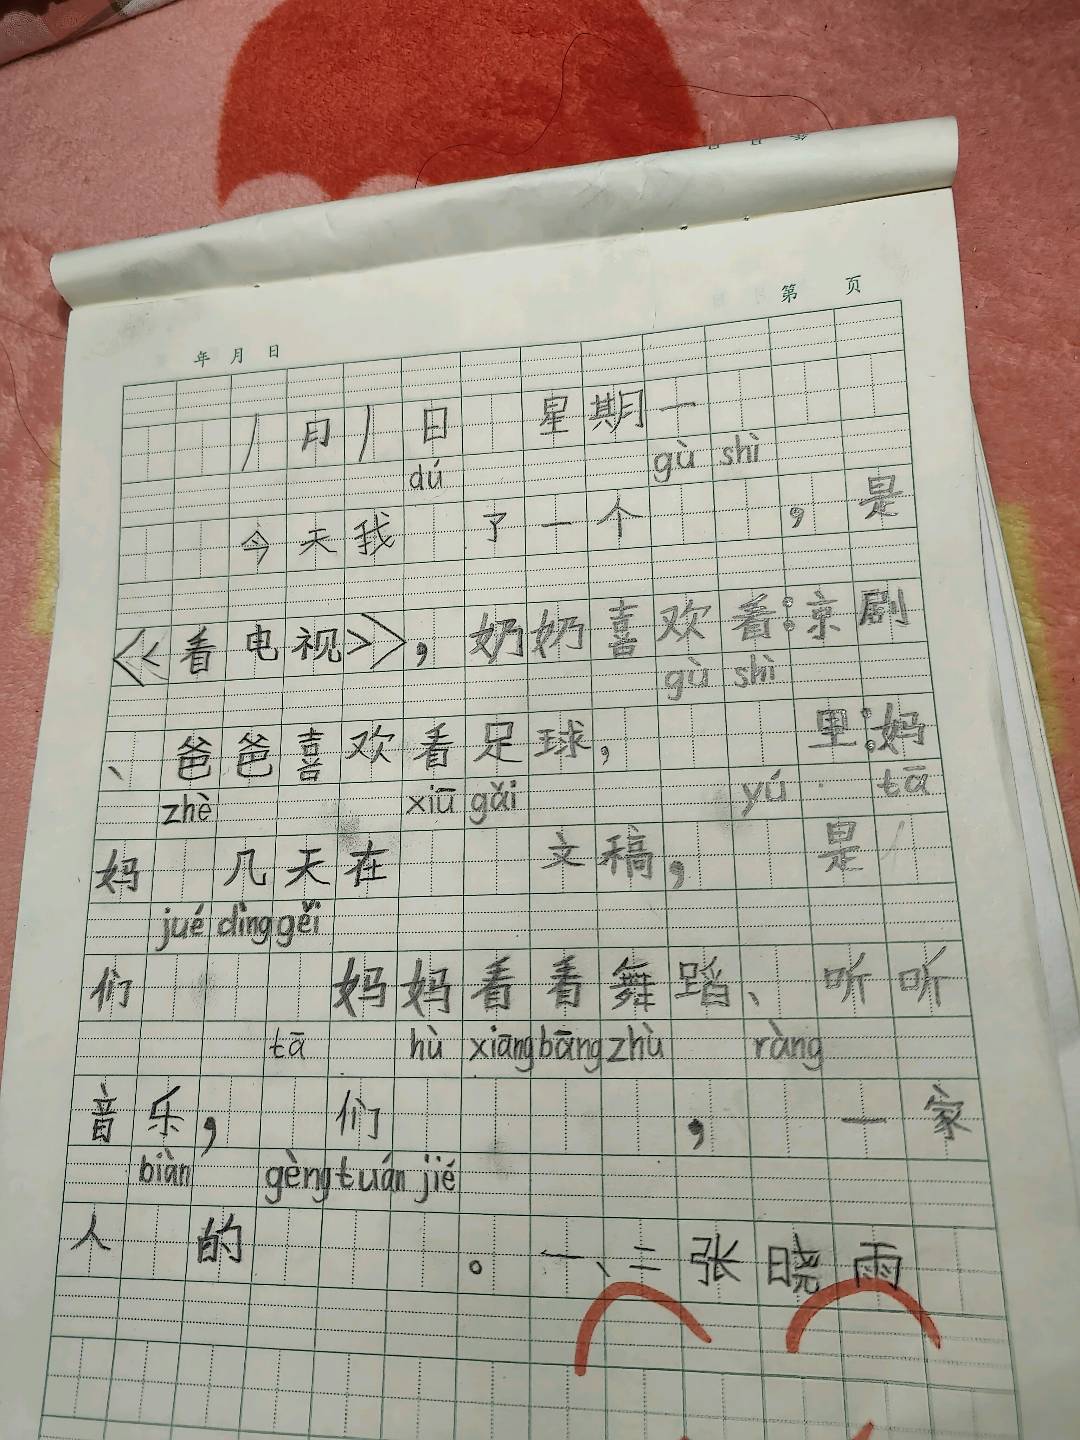 年 月 日
第 页
年 月 日
1月1日 星期一
dú gù shì
今天我 了一个 ，是
《看电视》，奶奶喜欢看：京剧
gù shì
、爸爸喜欢看足球， 里：妈
zhè xiū gǎi yú tā
妈 几天在 文稿， 是
jué dìng gěi
们 妈妈看看舞蹈、听听
tā hù xiāng bāng zhù ràng
音乐， 们 ， 一家
biàn gèng tuán jié
人 的 。一、二张晓雨